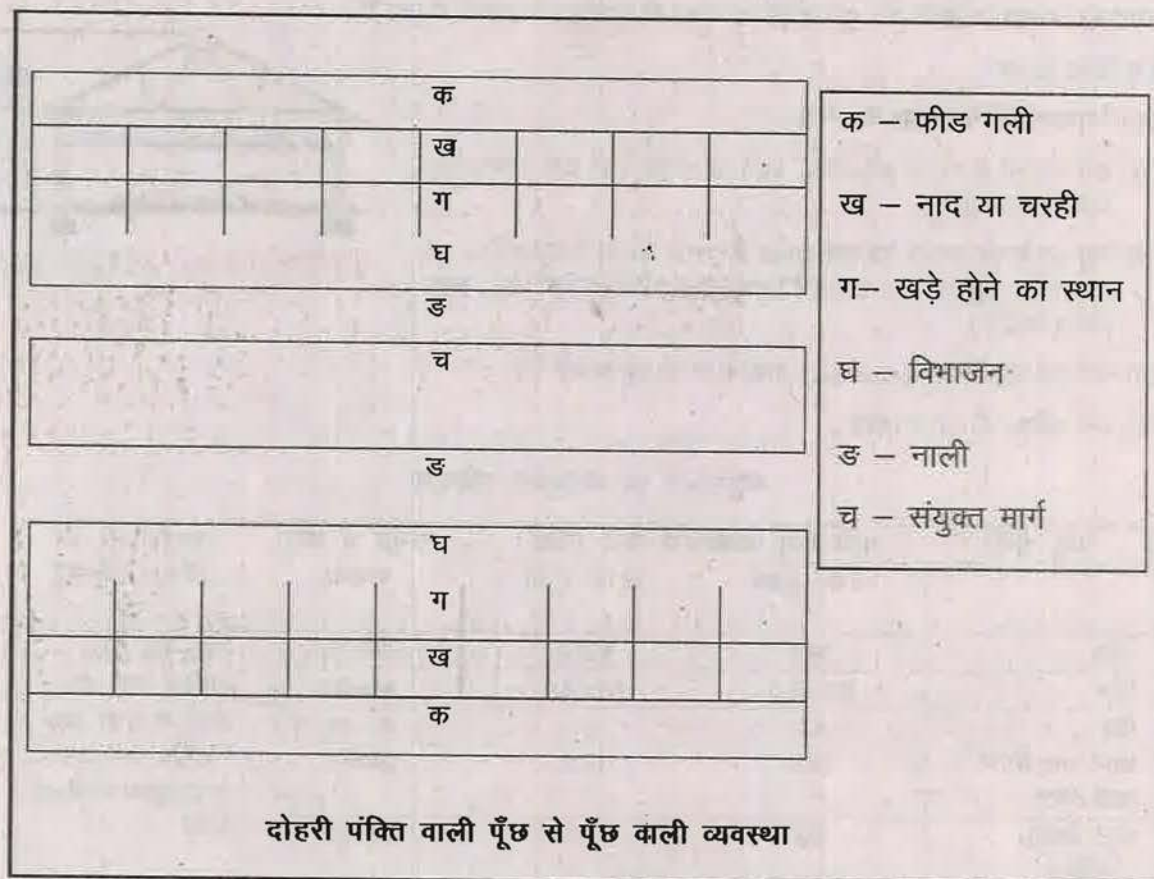 क
ख
ग
घ
ङ
च
ङ
घ
ग
ख
क
क – फीड गली
ख – नाद या चरही
ग– खड़े होने का स्थान
घ – विभाजन
ङ – नाली
च – संयुक्त मार्ग
दोहरी पंक्ति वाली पूँछ से पूँछ वाली व्यवस्था